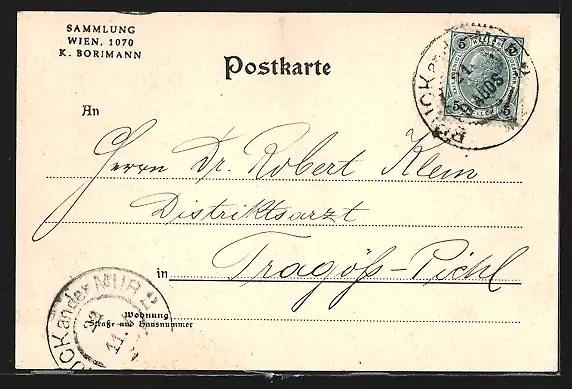 SAMMLUNG
WIEN, 1070
K. BORIMANN
Postkarte
5 5
BRUCK an der MUR 2
21
An
Herrn Dr. Robert Klein
Distriktsarzt
in Tragöß-Pichl
BRUCK an der MUR 2
22
11
Wohnung
Straße und Hausnummer